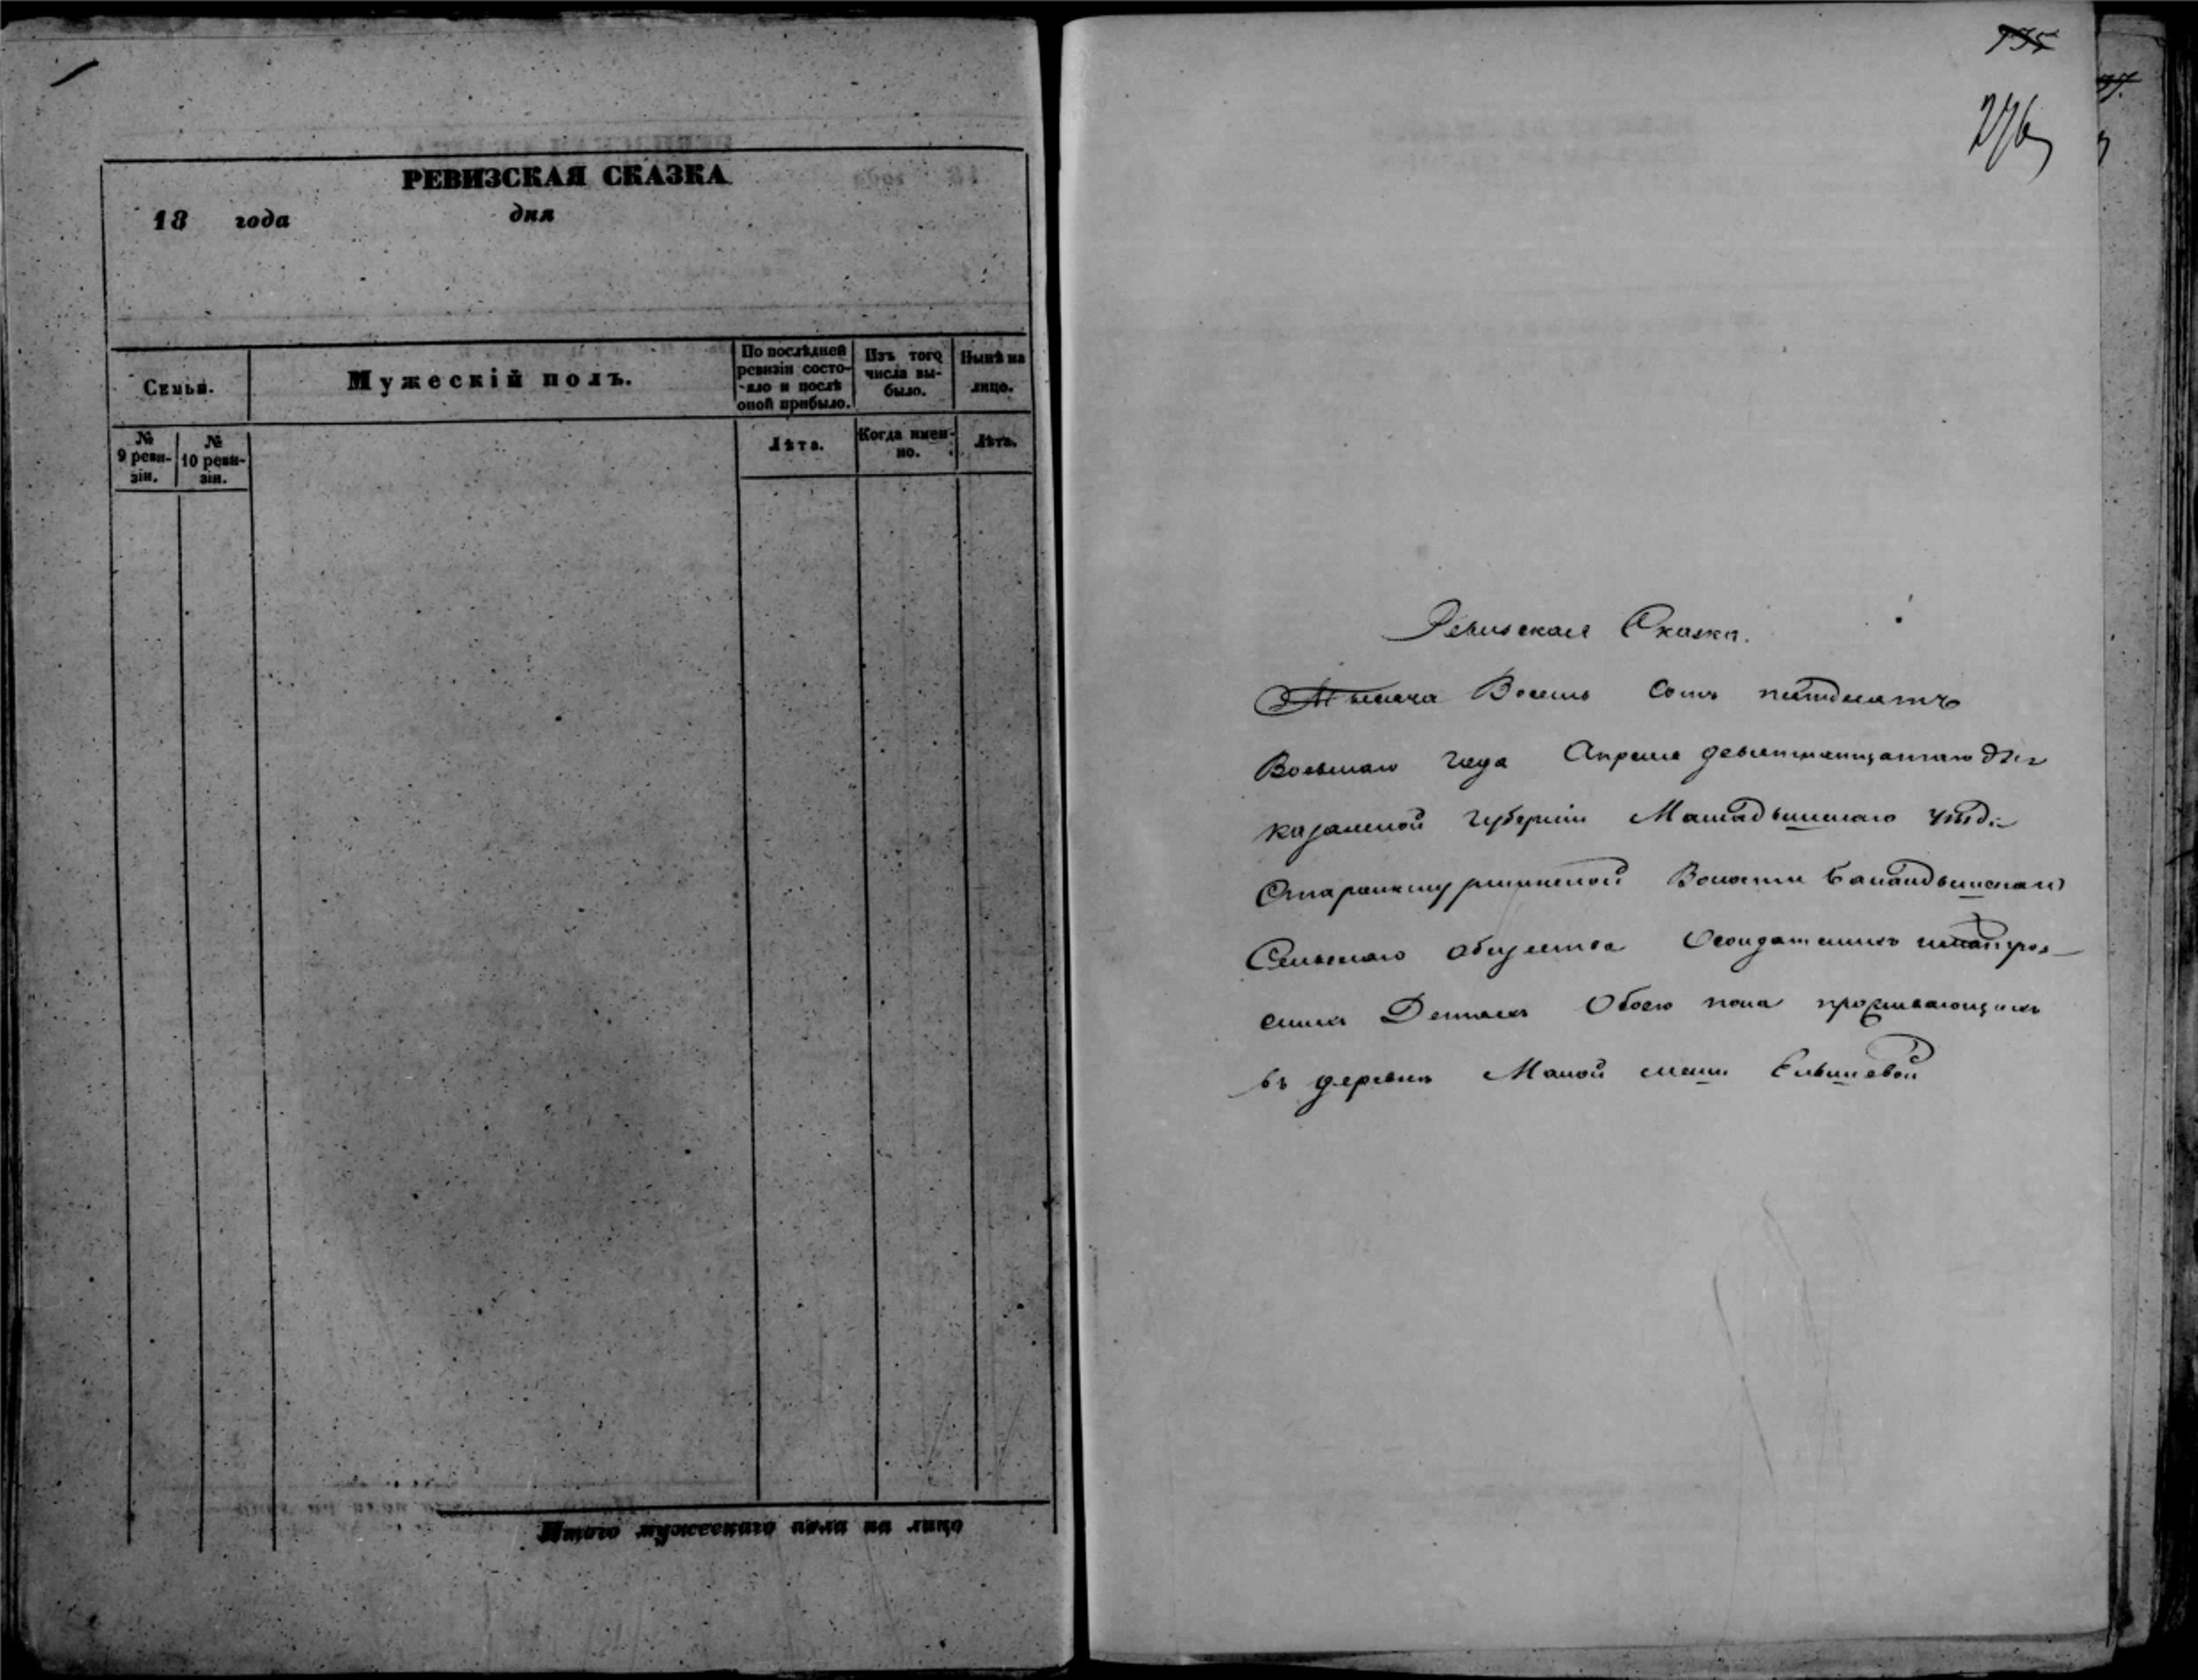 РЕВИЗСКАЯ СКАЗКА
18 года дня
Семьи.
Мужескій полъ.
По послѣдней ревизіи состояло и послѣ оной прибыло.
Изъ того числа выбыло.
Нынѣ на лицо.
№ 9 ревизіи.
№ 10 ревизіи.
Лѣта.
Когда именно.
Лѣта.
Итого мужескаго пола на лицо
195
276
Ревизская Сказка.
Тысяча Восемь Сотъ пятдесятъ
Восьмаго года Апреля девятнатцатаго дня
казанской губерніи Мамадышскаго уѣзд.
Волости
Сельскаго общества Солдатскихъ
Детяхъ Обоего пола проживающихъ
въ деревнѣ Малой